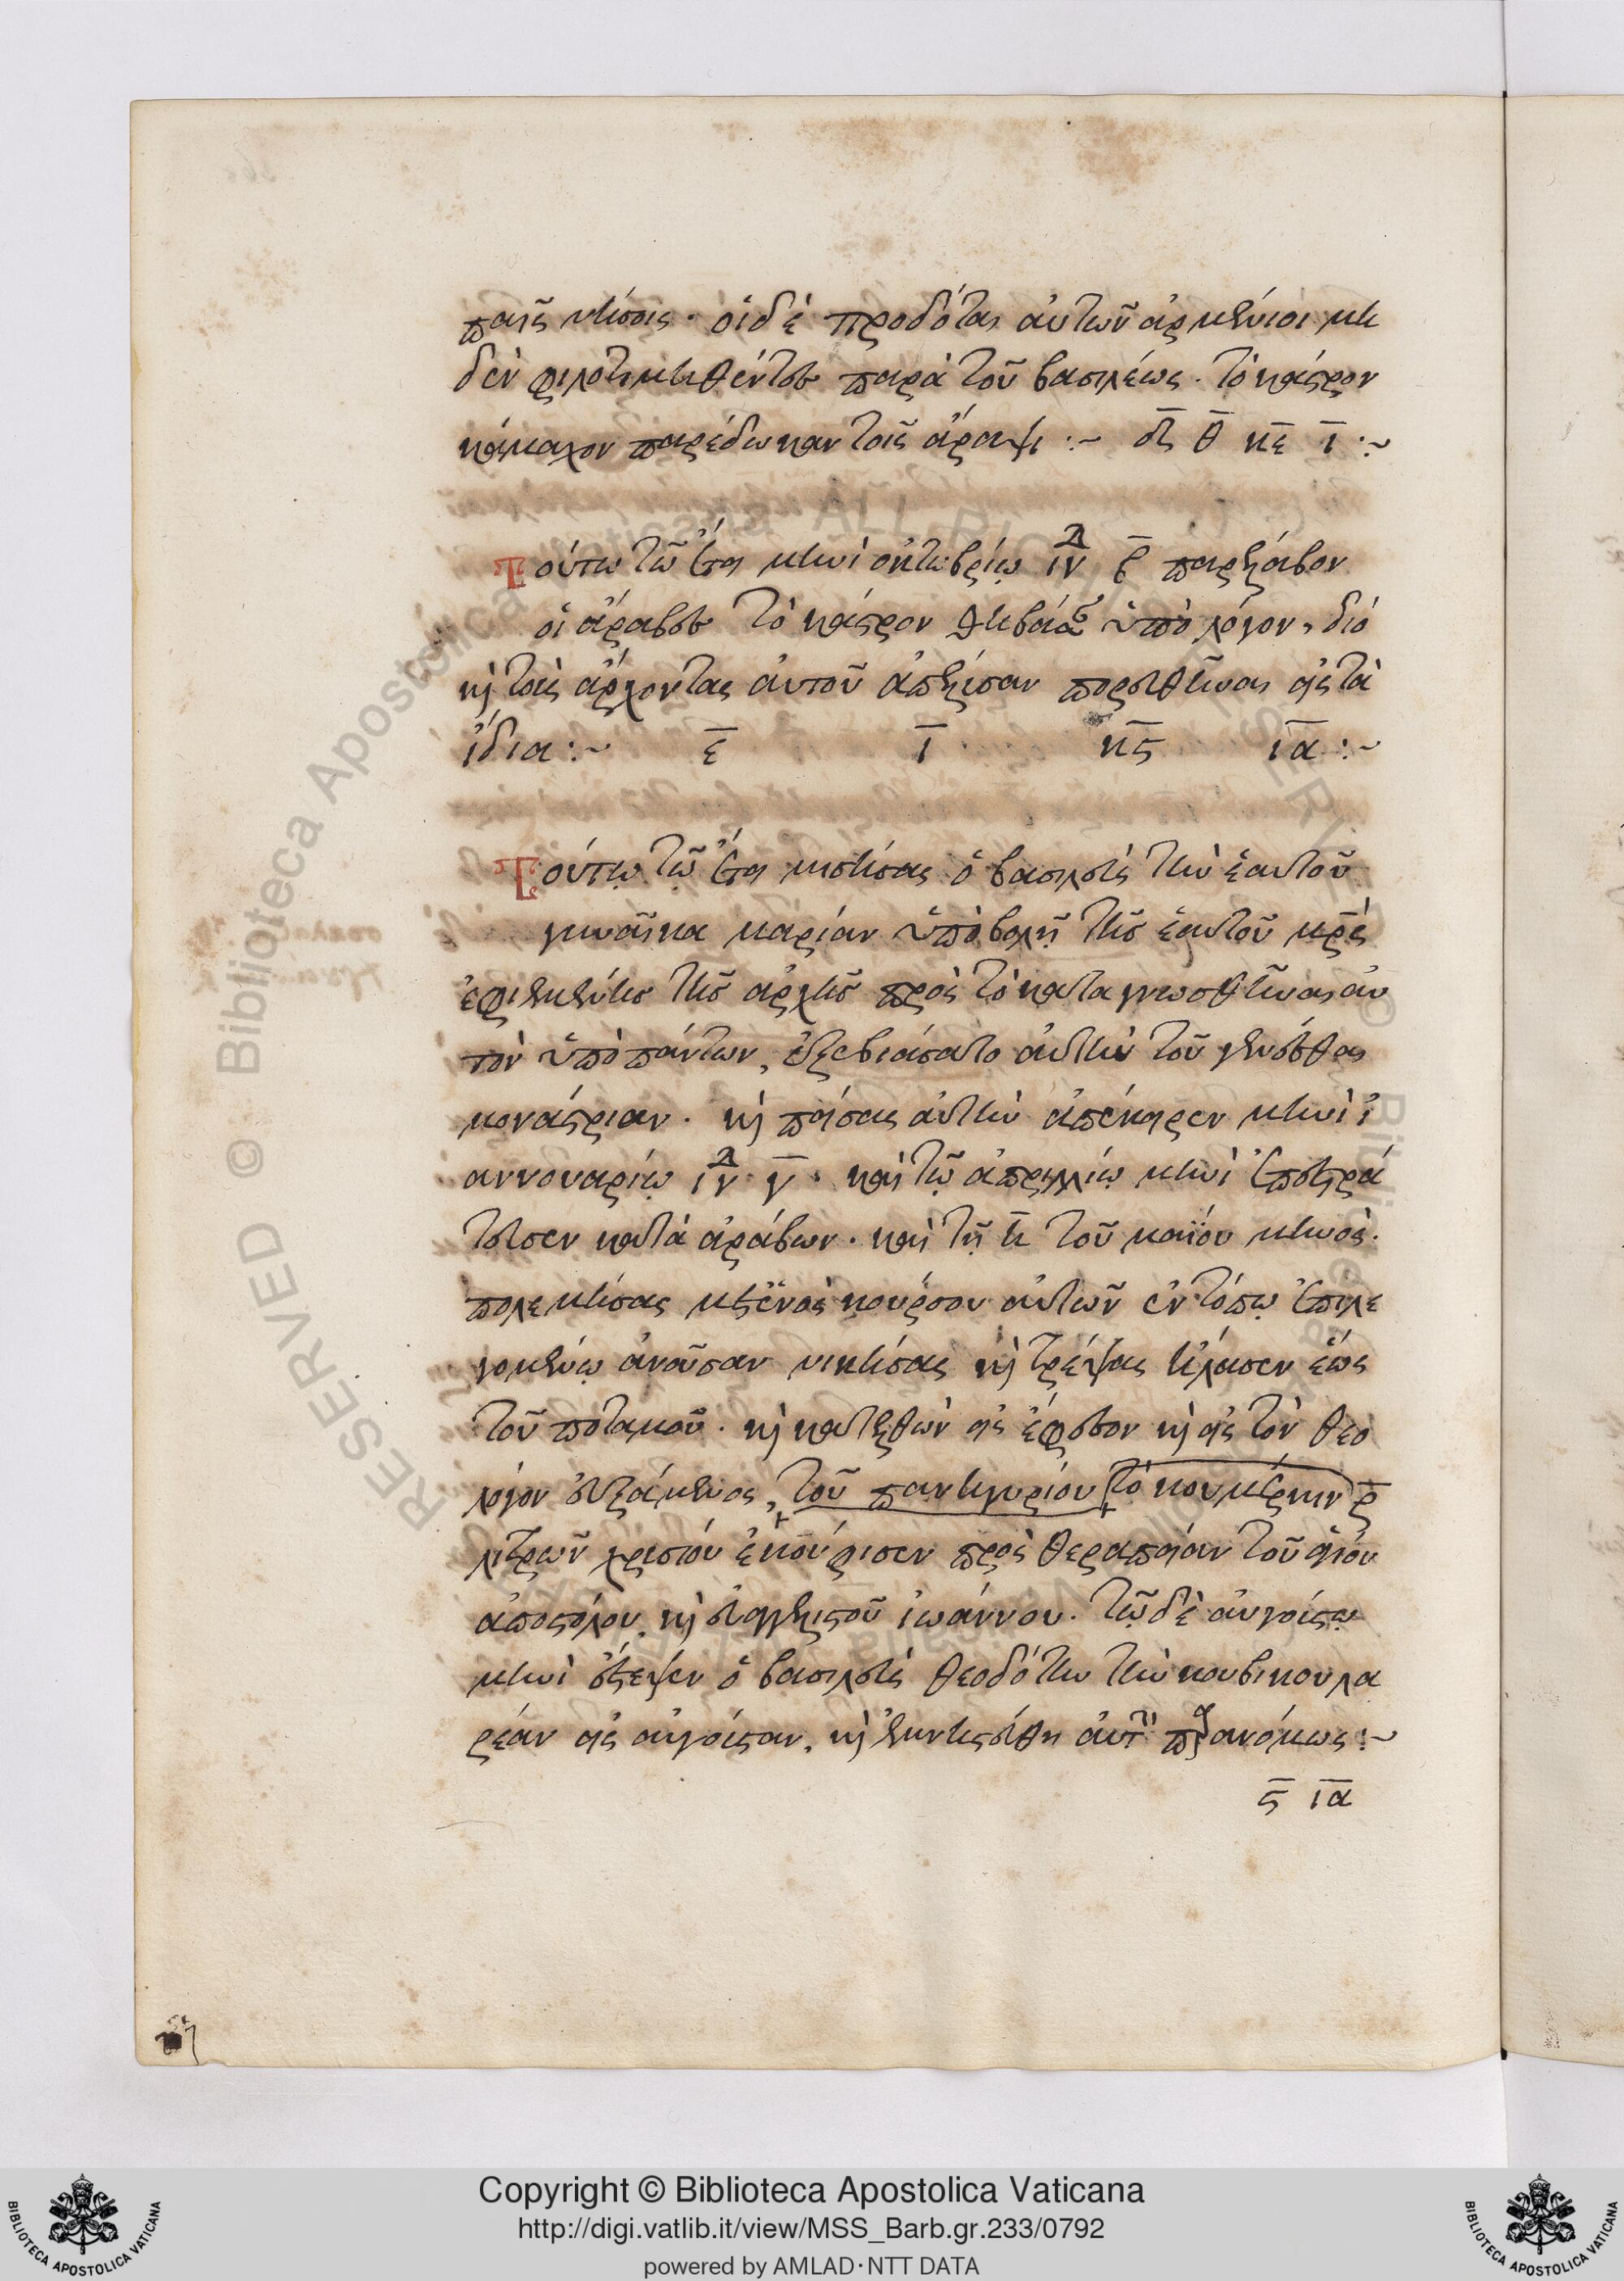 παῖς νήσοις. οἱ δὲ προδόται αὐτῶν ἀρμένιοι μη
δὲν φιλοτιμηθέντες παρὰ τοῦ βασιλέως. τὸ κάστρον
κάμαχον παρέδωκαν τοῖς ἄραψι :~ δ̅ θ̅ κ̅ε̅ ι̅ :~
Τούτῳ τῷ ἔτει μηνὶ ὀκτωβρίῳ ἰν̅δ β̅ παρέλαβον
οἱ ἄραβες τὸ κάστρον θηβάσ ὑπὸ λόγον, διὸ
καὶ τοὺς ἄρχοντας αὐτοῦ ἀπέλυσαν πορευθῆναι εἰς τὰ
ἴδια :~ ε̅ ι̅ κ̅ς̅ ι̅α̅ :~
Τούτῳ τῷ ἔτει μισήσας ὁ βασιλεὺς τὴν ἑαυτοῦ
γυναῖκα μαρίαν ὑπὸ βολῇ τῆς ἑαυτοῦ μρ̅ς
ἐφιεμένης τῆς ἀρχῆς πρὸς τὸ καταγνωσθῆναι αὐ
τὸν ὑπὸ πάντων, ἐξεβιάσατο αὐτὴν τοῦ γενέσθαι
μονάστριαν. καὶ πείσας αὐτὴν ἀπέκειρεν μηνὶ ἰ
αννουαρίῳ ἰν̅δ γ̅. καὶ τῷ ἀπριλλίῳ μηνὶ ἐπεστρά
τευσεν κατὰ ἀράβων. καὶ τῇ η̅ τοῦ μαΐου μηνὸς.
πολεμήσας μετ' ἑνὸς κούρσου αὐτῶν ἐν τόπῳ ἐπιλε
γομένῳ ἀνοῦσαν νικήσας καὶ τρέψας ἤλασεν ἕως
τοῦ ποταμοῦ. καὶ κατελθὼν εἰς ἔφεσον καὶ εἰς τὸν θεο
λόγον εὐξάμενος, τοῦ πανηγυρίου τὸ κουμέρκιν ρ̅
λιτρῶν χρυσίου ἐκούφισεν πρὸς θεραπείαν τοῦ ἁγίου
ἀποστόλου καὶ εὐαγγελιστοῦ ἰωάννου. τῷ δὲ αὐγούστῳ
μηνὶ ἔστεψεν ὁ βασιλεὺς θεοδότην τὴν κουβικουλα
ρέαν εἰς αὐγοῦσταν, καὶ ἐμνηστεύθη αὐτὴν παρανόμως :~
ς̅ ι̅α̅
Copyright © Biblioteca Apostolica Vaticana
http://digi.vatlib.it/view/MSS_Barb.gr.233/0792
powered by AMLAD·NTT DATA